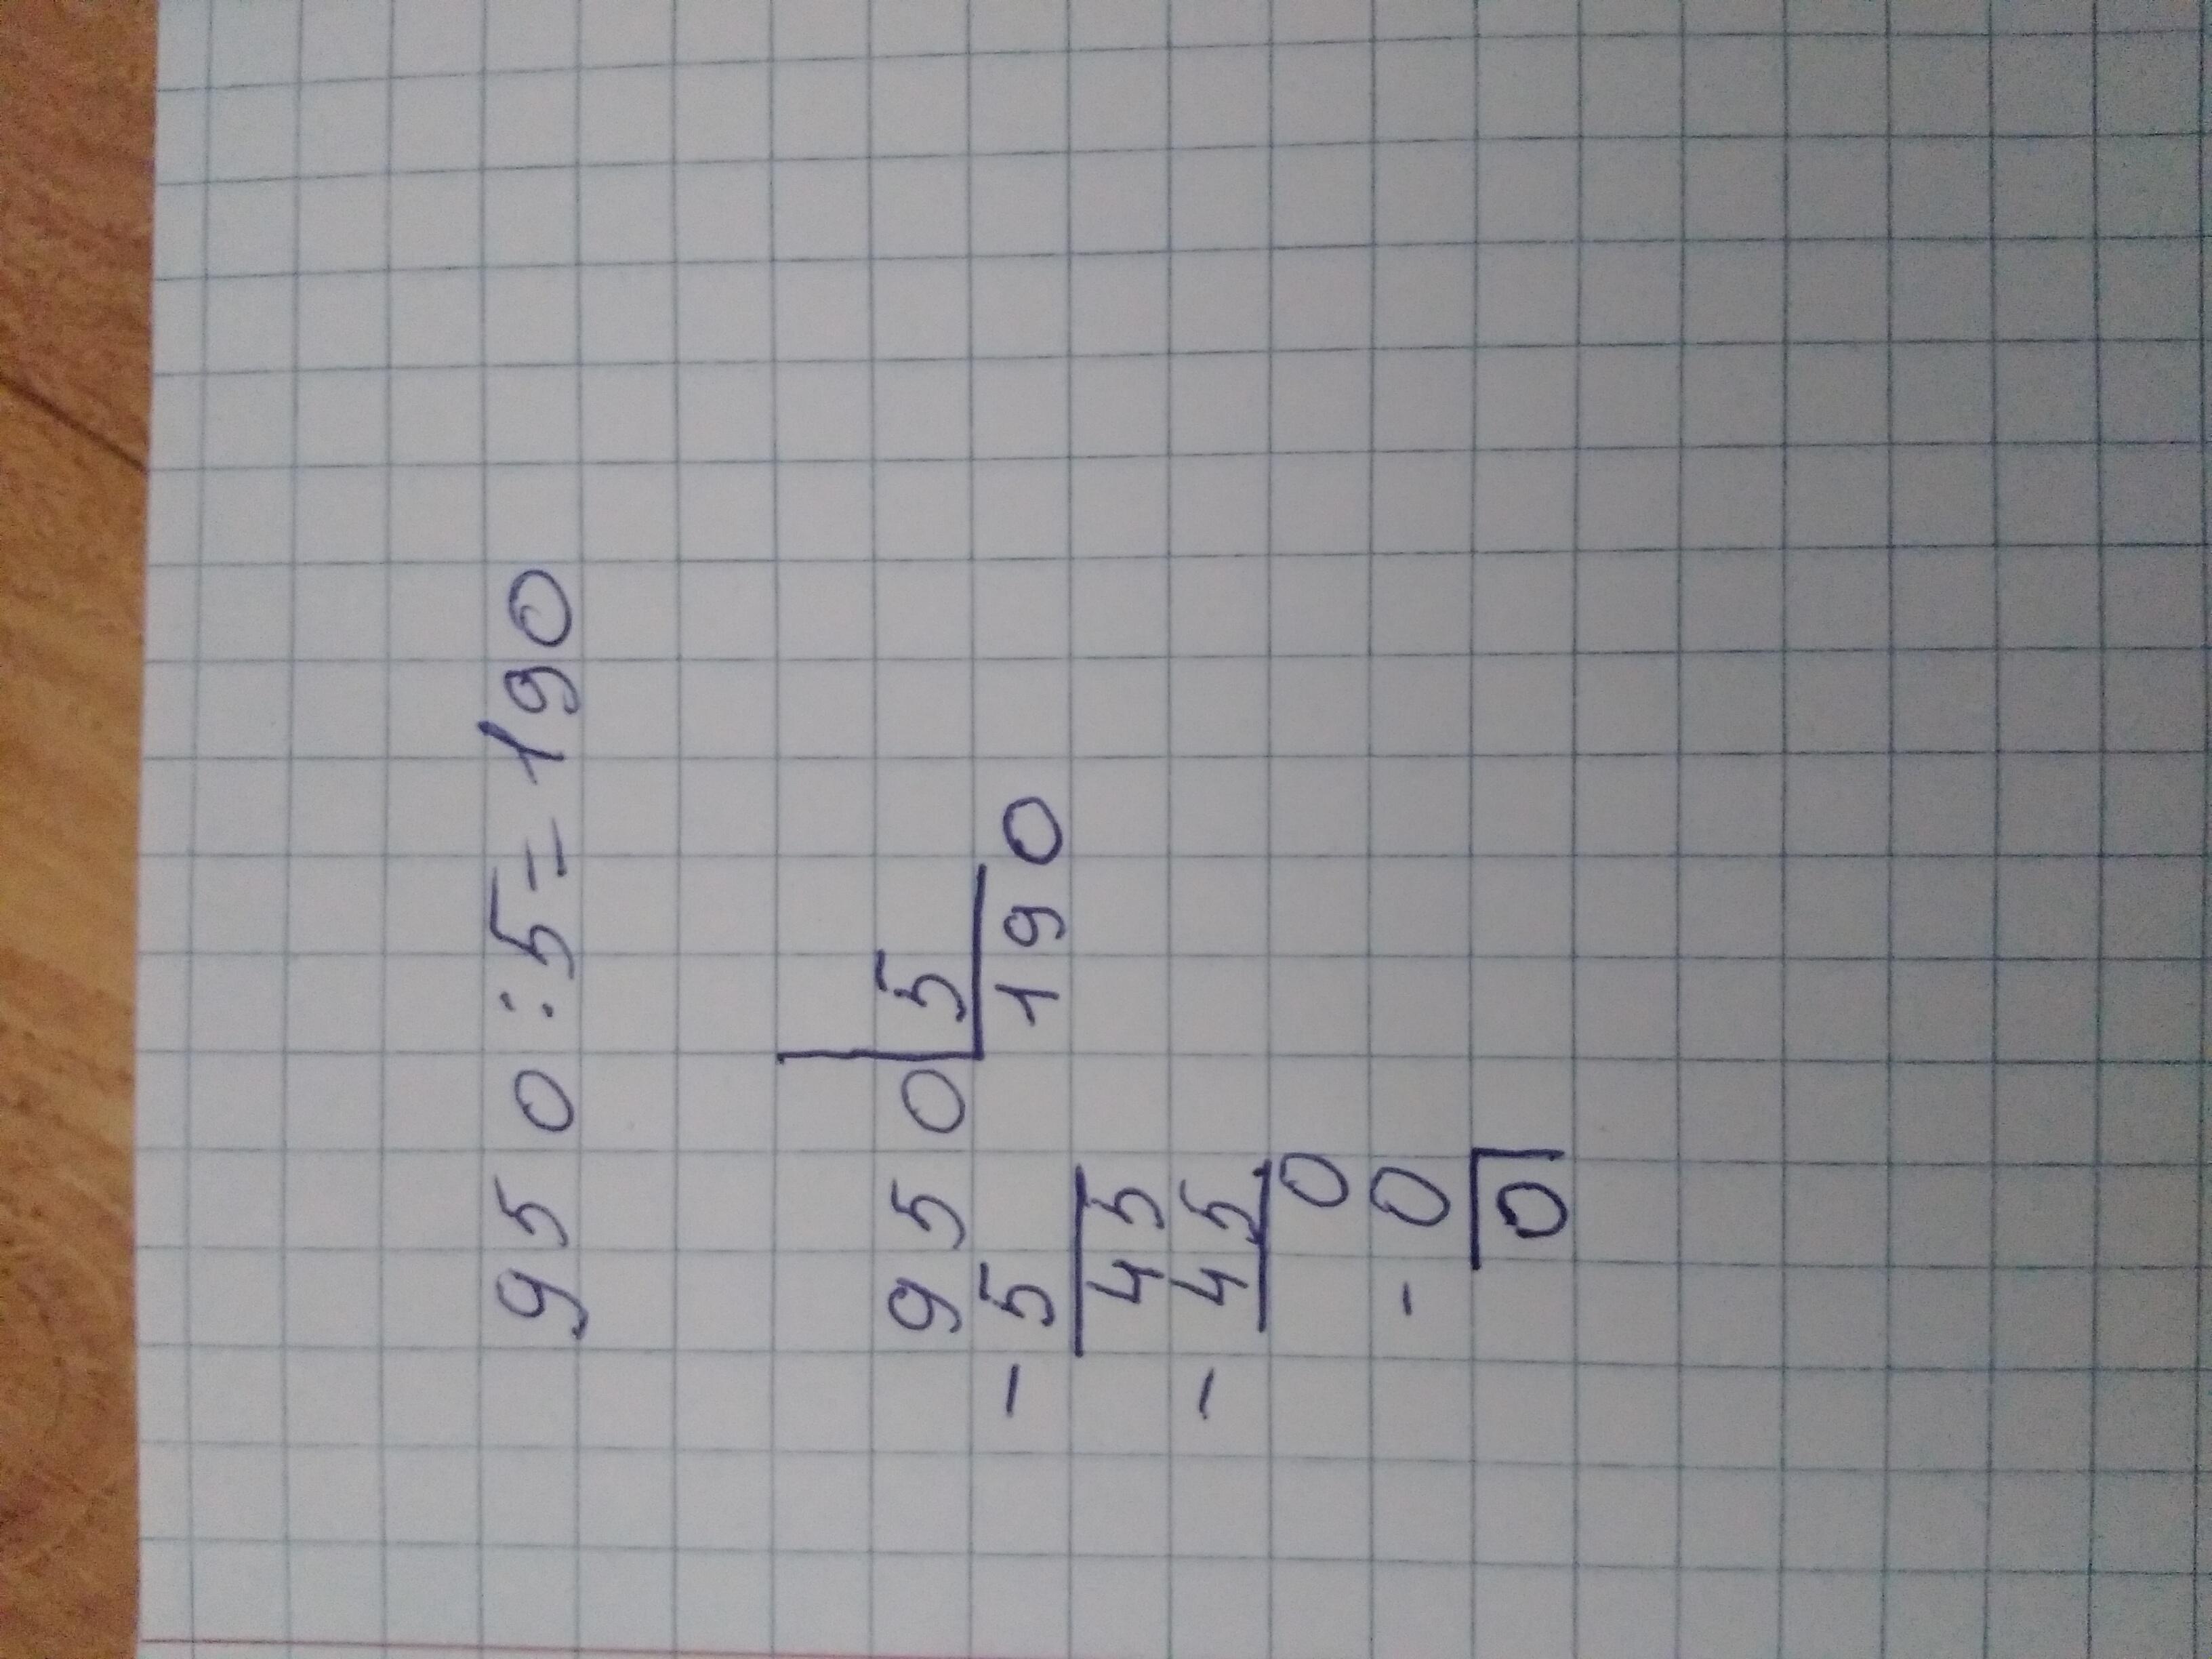 950:5=190
950 5
-5 190
45
-45
0
-0
0